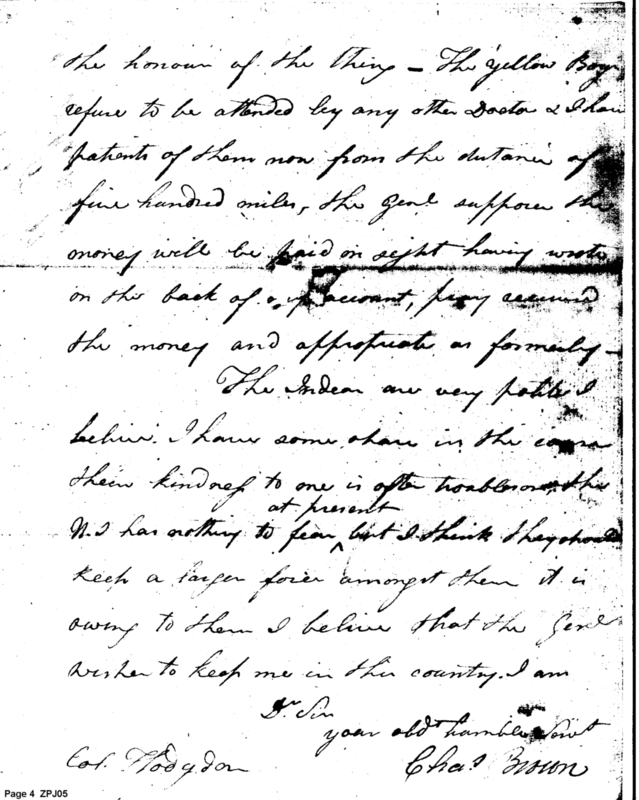 the honour of the thing – The Yellow Boys
refuse to be attended by any other Doctor & I have
patients of them now from the distance of
five hundred miles, the Genl suppose the
money will be paid on sight having wrote
on the back of my account, pray received
the money and appropriate as formerly –
The Indean are very polite I
believe. I have some share in the cause
their kindness to one is often troublesome, the
at present
N. I has nothing to fear ‸ but I think they should
keep a larger force amongst them it is
owing to them I believe that the Genl
wishes to keep me in this country. I am
Dr. Sir
your obdt humble Servt
Col. Hodgdon Chas Brown
Page 4 ZPJ05